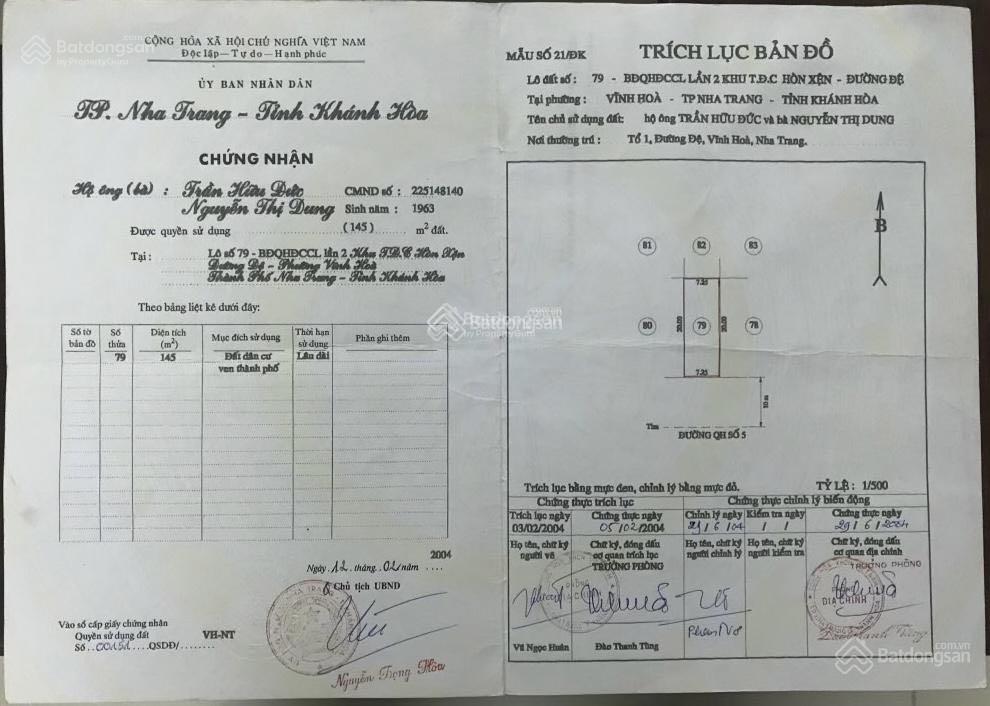 CỘNG HÒA XÃ HỘI CHỦ NGHĨA VIỆT NAM
Độc lập — Tự do — Hạnh phúc
ỦY BAN NHÂN DÂN
TP. Nha Trang - Tỉnh Khánh Hòa
CHỨNG NHẬN
Hộ ông (bà) : Trần Hữu Đức CMND số : 225148140
Nguyễn Thị Dung Sinh năm : 1963
Được quyền sử dụng (145) m² đất.
Tại : Lô số 79 - BĐQHĐCCL lần 2 Khu T.Đ.C Hòn Xện
Đường Đệ - Phường Vĩnh Hoà
Thành Phố Nha Trang - Tỉnh Khánh Hòa
Theo bảng liệt kê dưới đây:
Số tờ bản đồ Số thửa Diện tích (m²) Mục đích sử dụng Thời hạn sử dụng Phần ghi thêm
79 145 Đất dân cư Lâu dài
ven thành phố
2004
Ngày .12. tháng .02/năm ....
Chủ tịch UBND
Vào sổ cấp giấy chứng nhận
Quyền sử dụng đất VH-NT
Số QSDĐ/
Nguyễn Trọng Hòa
MẪU SỐ 21/ĐK TRÍCH LỤC BẢN ĐỒ
Lô đất số : 79 - BĐQHĐCCL LẦN 2 KHU T.Đ.C HÒN XỆN - ĐƯỜNG ĐỆ
Tại phường : VĨNH HOÀ - TP NHA TRANG - TỈNH KHÁNH HÒA
Tên chủ sử dụng đất: hộ ông TRẦN HỮU ĐỨC và bà NGUYỄN THỊ DUNG
Nơi thường trú : Tổ 1, Đường Đệ, Vĩnh Hoà, Nha Trang.
B
81 82 83
7.25
80 20.00 79 20.00 78
7.25
10m
Tim
ĐƯỜNG QH SỐ 5
Trích lục bằng mực đen, chỉnh lý bằng mực đỏ. TỶ LỆ : 1/500
Chứng thực trích lục Chứng thực chỉnh lý biến động
Trích lục ngày Chứng thực ngày Chỉnh lý ngày Kiểm tra ngày Chứng thực ngày
03/02/2004 05/02/2004 21/6/04 / / 29/6/2004
Họ tên, chữ ký người vẽ Chữ ký, đóng dấu cơ quan trích lục Họ tên, chữ ký người chỉnh lý Họ tên, chữ ký người kiểm tra Chữ ký, đóng dấu cơ quan địa chính
TRƯỞNG PHÒNG TRƯỞNG PHÒNG
ĐỊA CHÍNH
Vũ Ngọc Huân Đào Thanh Tùng
Đào Thanh Tùng
Batdongsan.com.vn
by PropertyGuru
Batdongsan.com.vn
by PropertyGuru
Batdongsan.com.vn